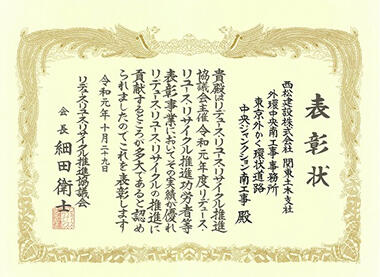 表彰状
西松建設株式会社 関東土木支社
外環中央南工事事務所
東京外かく環状道路
中央ジャンクション南工事 殿
貴殿はリデュース・リユース・リサイクル推進
協議会主催 令和元年度リデュース・
リユース・リサイクル推進功労者等
表彰事業においてその実績が優れ
リデュース・リユース・リサイクルの推進に
貢献するところが多大であると認め
られましたのでこれを表彰します
令和元年十月二十九日
リデュース・リユース・リサイクル推進協議会
会長 細田衛士